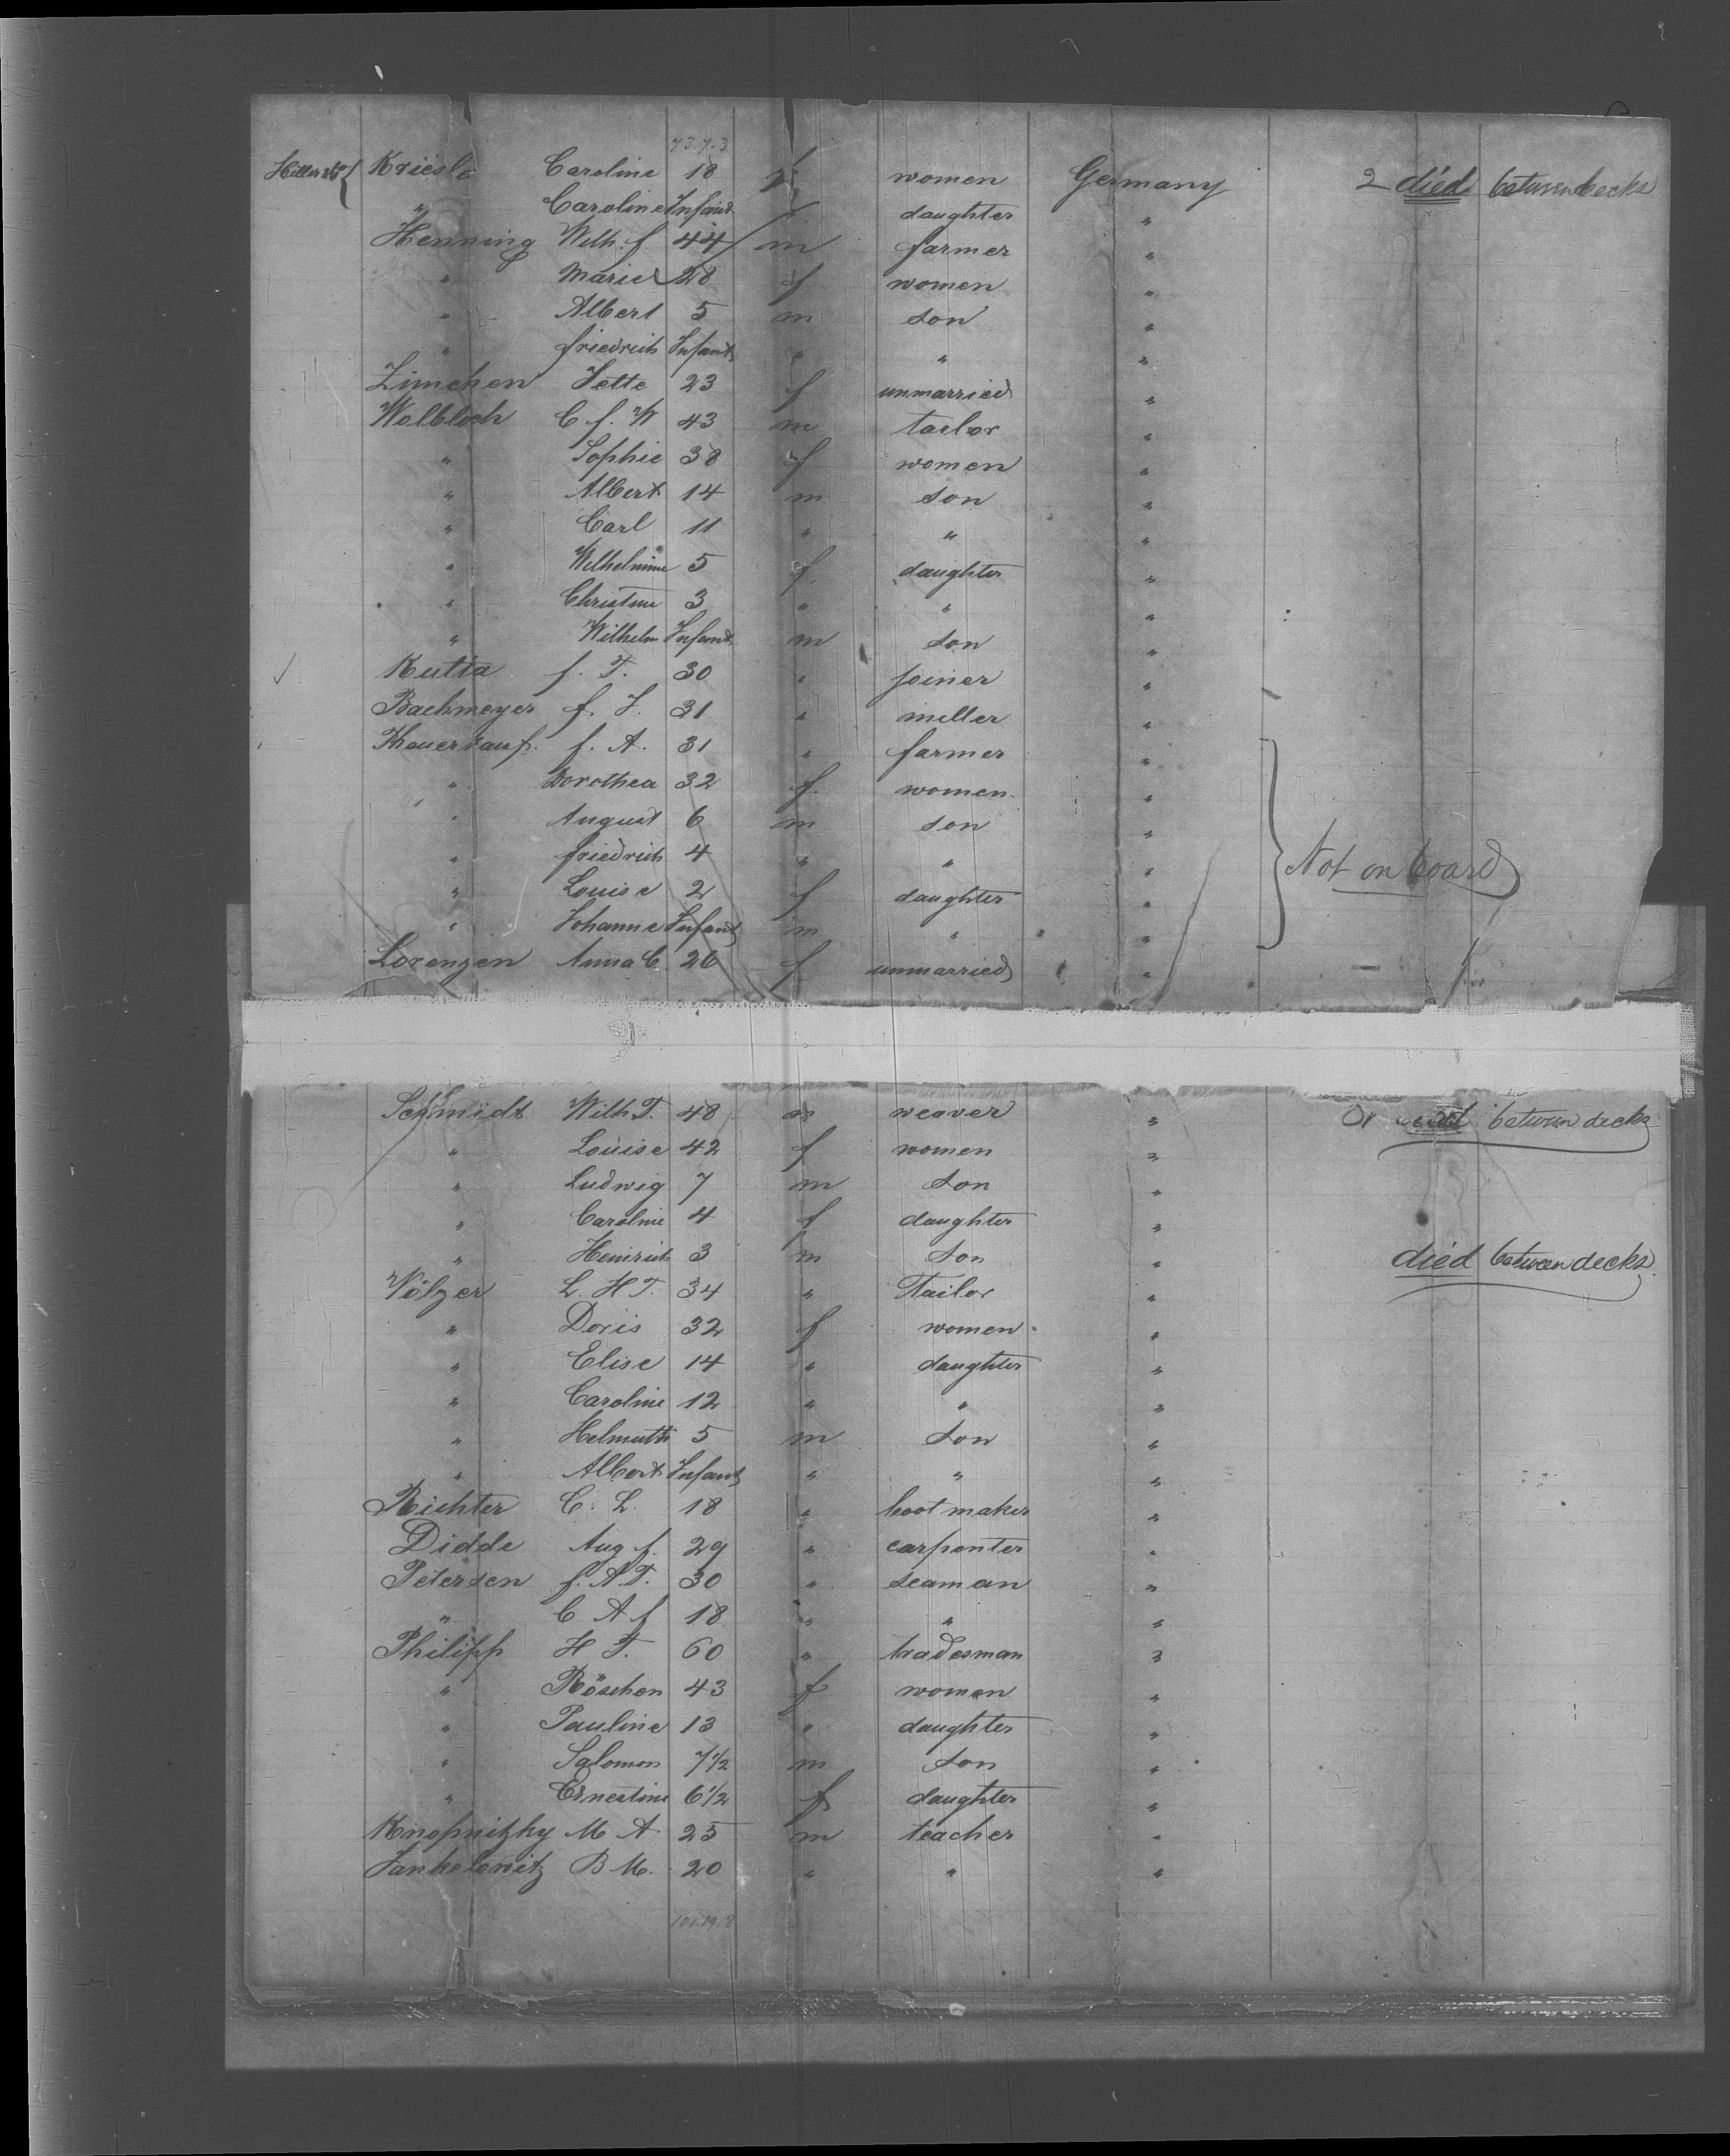 73.7.3
Kriesle Caroline 18 f women Germany 2 died between decks
" Caroline Infant daughter "
Henning Wilh. f. 44 m farmer "
" Marie 28 f women "
" Albert 5 m son "
" friedrich Infant " " "
Zimchen Jette 23 f unmarried "
Wolbloch C f. W 43 m tailor "
" Sophie 38 f women "
" Albert 14 m son "
" Carl 11 " " "
" Wilhelmine 5 f. daughter "
" Christine 3 " " "
" Wilhelm Infant m son "
Kutta f. T. 30 " joiner "
Bachmeyer f. J. 31 " miller "
Thauerkauf. f. A. 31 " farmer "
" Dorothea 32 f. women "
" August 6 m son "
" friedrich 4 " " " Not on board
" Louise 2 f daughter "
" Johanne Infant m " "
Lorenzen Anna C. 26 f unmarried "
Schmidt Wilh. T. 48 m weaver " between decks
" Louise 42 f women "
" Ludwig 7 m son "
" Caroline 4 f daughter "
" Heinrich 3 m son " died between decks.
Völzer L. H T. 34 " Tailor "
" Doris 32 f women "
" Elise 14 " daughter "
" Caroline 12 " " "
" Helmuth 5 m son "
" Albert Infant " " "
Richter C. L. 18 " boot maker "
Didde Aug f. 29 " carpenter "
Petersen f. A. T. 30 " seaman "
" C A f 18 " " "
Philipp H T. 60 " tradesman "
" Röschen 43 f women "
" Pauline 13 " daughter "
" Salomon 7 1/2 m son "
" Ernestine 6 1/2 f daughter "
Knopnitzky M A 25 m teacher "
Jankelowitz B M. 20 " " "